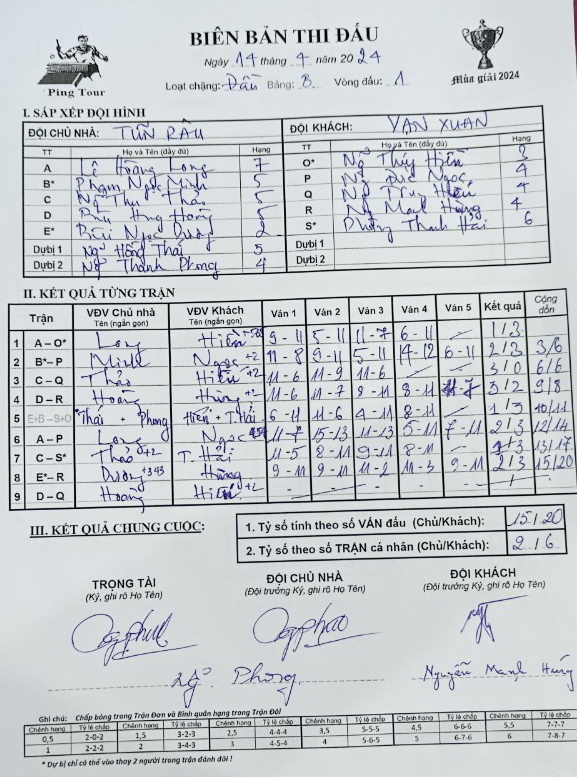 BIÊN BẢN THI ĐẤU
Ngày 14 tháng 4 năm 2024
Loạt chặng: Đấu Bảng: B Vòng đấu: 1
Ping Tour
Mùa giải 2024
I. SẮP XẾP ĐỘI HÌNH
ĐỘI CHỦ NHÀ: TUẤN RÂU ĐỘI KHÁCH: VẠN XUÂN
TT Họ và Tên (đầy đủ) Hạng TT Họ và Tên (đầy đủ) Hạng
A Lê Hoàng Long 7 O* Ng Thúy Hiền 3
B* Phạm Ngọc Minh 5 P Ng Đức Ngọc 4
C Ng Thu Thảo 5 Q Ng Trung Hiếu 4
D Hoàng 5 R Ng Mạnh Hùng 4
E* Bùi Ngọc Dương 2 S* Phùng Thanh Hải 6
Dựbị 1 Ng Hồng Thái 5 Dựbị 1
Dựbị 2 Ng Thành Phong 4 Dựbị 2
II. KẾT QUẢ TỪNG TRẬN
Trận VĐV Chủ nhà Tên (ngắn gọn) VĐV Khách Tên (ngắn gọn) Ván 1 Ván 2 Ván 3 Ván 4 Ván 5 Kết quả Cộng dồn
1 A – O* Long Hiền 9 - 11 5 - 11 11 - 7 6 - 11 1/3
2 B*– P Minh Ngọc +2 11 - 8 9 - 11 5 - 11 14 - 12 6 - 11 2/3 3/6
3 C – Q Thảo Hiếu +2 11 - 6 11 - 9 11 - 6 3/0 6/6
4 D – R Hoàng Hùng +2 11 - 6 11 - 7 8 - 11 8 - 11 11 - 7 3/2 9/8
5 Thái + Phong Hiền + T.Hải 6 - 11 11 - 6 4 - 11 8 - 11 1/3 10/11
6 A – P Long Ngọc 11 - 7 15 - 13 11 - 13 5 - 11 7 - 11 2/3 12/14
7 C – S* Thảo +2 T. Hải 11 - 5 8 - 11 9 - 11 8 - 11 1/3 13/17
8 E*– R Dương +343 Hùng 9 - 11 9 - 11 11 - 2 11 - 3 9 - 11 2/3 15/20
9 D – Q Hoàng Hiếu +2
III. KẾT QUẢ CHUNG CUỘC:
1. Tỷ số tính theo số VÁN đấu (Chủ/Khách): 15/20
2. Tỷ số theo số TRẬN cá nhân (Chủ/Khách): 2/6
TRỌNG TÀI ĐỘI CHỦ NHÀ ĐỘI KHÁCH
(Ký, ghi rõ Họ Tên) (Đội trưởng Ký, ghi rõ Họ Tên) (Đội trưởng Ký, ghi rõ Họ Tên)
Ng Phong Nguyễn Mạnh Hùng
Ghi chú: Chấp bóng trong Trận Đơn và Bình quân hạng trong Trận Đôi
Chênh hạng Tỷ lệ chấp Chênh hạng Tỷ lệ chấp Chênh hạng Tỷ lệ chấp Chênh hạng Tỷ lệ chấp Chênh hạng Tỷ lệ chấp Chênh hạng Tỷ lệ chấp
0,5 2-0-2 1,5 3-2-3 2,5 4-4-4 3,5 5-5-5 4,5 6-6-6 5,5 7-7-7
1 2-2-2 2 3-4-3 3 4-5-4 4 5-6-5 5 6-7-6 6 7-8-7
* Dự bị chỉ có thể vào thay 2 người trong trận đánh đôi !